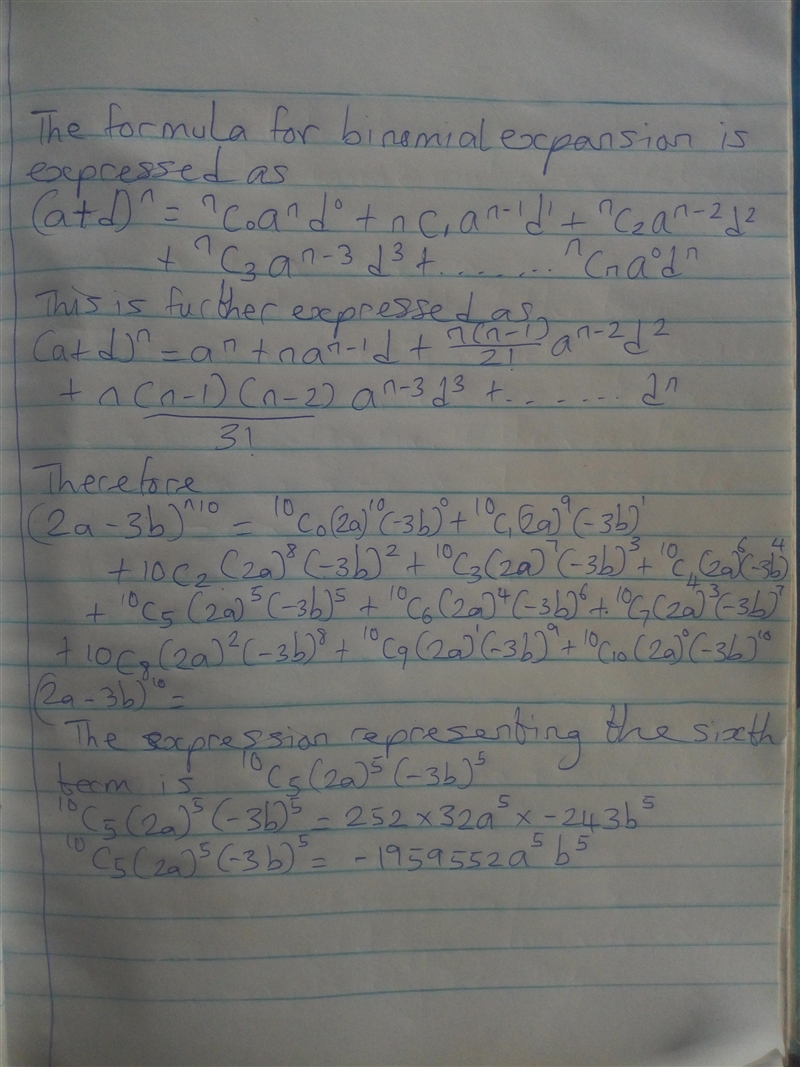 The formula for binomial expansion is
expressed as
(a+d)ⁿ = ⁿC₀aⁿd⁰ + nC₁aⁿ⁻¹d¹ + ⁿC₂aⁿ⁻²d²
+ ⁿC₃aⁿ⁻³d³ + ........ ⁿCₙa⁰dⁿ
This is further expressed as
(a+d)ⁿ = aⁿ + naⁿ⁻¹d + n(n-1)/2! aⁿ⁻²d²
+ n(n-1)(n-2)/3! aⁿ⁻³d³ + ....... dⁿ
Therefore
(2a-3b)^10 = ¹⁰C₀(2a)¹⁰(-3b)⁰ + ¹⁰C₁(2a)⁹(-3b)¹
+ 10C₂(2a)⁸(-3b)² + ¹⁰C₃(2a)⁷(-3b)³ + ¹⁰C₄(2a)⁶(-3b)⁴
+ ¹⁰C₅(2a)⁵(-3b)⁵ + ¹⁰C₆(2a)⁴(-3b)⁶ + ¹⁰C₇(2a)³(-3b)⁷
+ 10C₈(2a)²(-3b)⁸ + ¹⁰C₉(2a)¹(-3b)⁹ + ¹⁰C₁₀(2a)⁰(-3b)¹⁰
(2a-3b)¹⁰ =
The expression representing the sixth
term is ¹⁰C₅(2a)⁵(-3b)⁵
¹⁰C₅(2a)⁵(-3b)⁵ = 252×32a⁵×-243b⁵
¹⁰C₅(2a)⁵(-3b)⁵ = -1959552a⁵b⁵